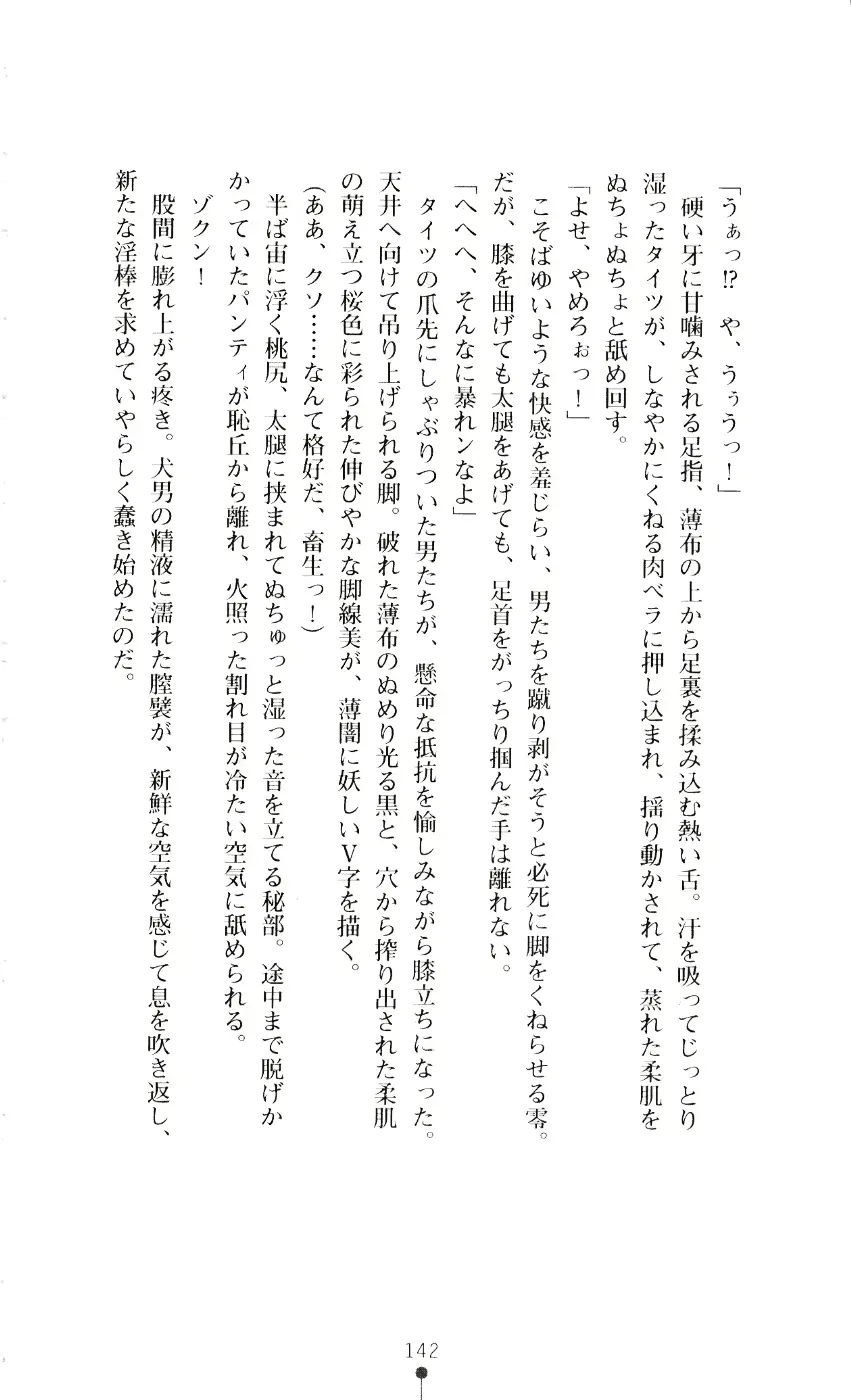 「うぁっ!?　や、うぅうっ！」
　硬い牙に甘噛みされる足指、薄布の上から足裏を揉み込む熱い舌。汗を吸ってじっとり
湿ったタイツが、しなやかにくねる肉ベラに押し込まれ、揺り動かされて、蒸れた柔肌を
ぬちょぬちょと舐め回す。
「よせ、やめろぉっ！」
　こそばゆいような快感を羞じらい、男たちを蹴り剥がそうと必死に脚をくねらせる零。
だが、膝を曲げても太腿をあげても、足首をがっちり掴んだ手は離れない。
「へへへ、そんなに暴れンなよ」
　タイツの爪先にしゃぶりついた男たちが、懸命な抵抗を愉しみながら膝立ちになった。
天井へ向けて吊り上げられる脚。破れた薄布のぬめり光る黒と、穴から搾り出された柔肌
の萌え立つ桜色に彩られた伸びやかな脚線美が、薄闇に妖しいＶ字を描く。
（ああ、クソ……なんて格好だ、畜生っ！）
　半ば宙に浮く桃尻、太腿に挟まれてぬちゅっと湿った音を立てる秘部。途中まで脱げか
かっていたパンティが恥丘から離れ、火照った割れ目が冷たい空気に舐められる。
　ゾクン！
　股間に膨れ上がる疼き。犬男の精液に濡れた膣襞が、新鮮な空気を感じて息を吹き返し、
新たな淫棒を求めていやらしく蠢き始めたのだ。
142